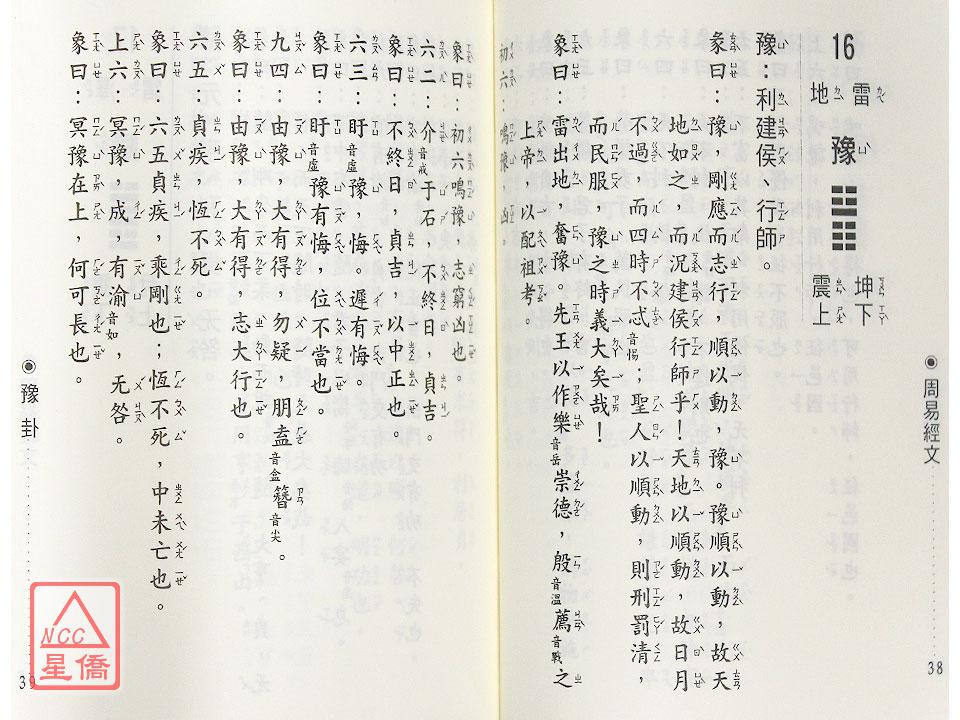 16 雷地 豫 ䷏ 坤下震上
豫:利建侯、行師。
彖曰:豫,剛應而志行,順以動,豫。豫順以動,故天
地如之,而況建侯行師乎!天地以順動,故日月
不過,而四時不忒音惕;聖人以順動,則刑罰清,
而民服,豫之時義大矣哉!
象曰:雷出地,奮豫。先王以作樂音岳崇德,殷音溫薦音戰之
上帝,以配祖考。
初六:鳴豫,凶。
象曰:初六鳴豫,志窮凶也。
六二:介音戒于石,不終日,貞吉。
象曰:不終日,貞吉,以中正也。
六三:盱音虛豫,悔。遲有悔。
象曰:盱音虛豫有悔,位不當也。
九四:由豫,大有得,勿疑,朋盍音盒簪音尖。
象曰:由豫,大有得,志大行也。
六五:貞疾,恆不死。
象曰:六五貞疾,乘剛也;恆不死,中未亡也。
上六:冥豫,成,有渝音如,无咎。
象曰:冥豫在上,何可長也。
周易經文
38
豫卦
39
NCC
星僑